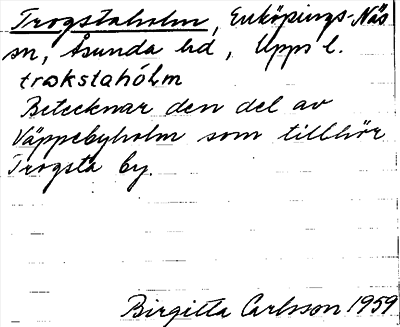 Trogstaholm, Enköpings-Näs
sn, Åsunda hd, Upps l.
trωkstahólm
Betecknar den del av
Väppebyholm som tillhör
Trogsta by.
Birgitta Carlsson 1959